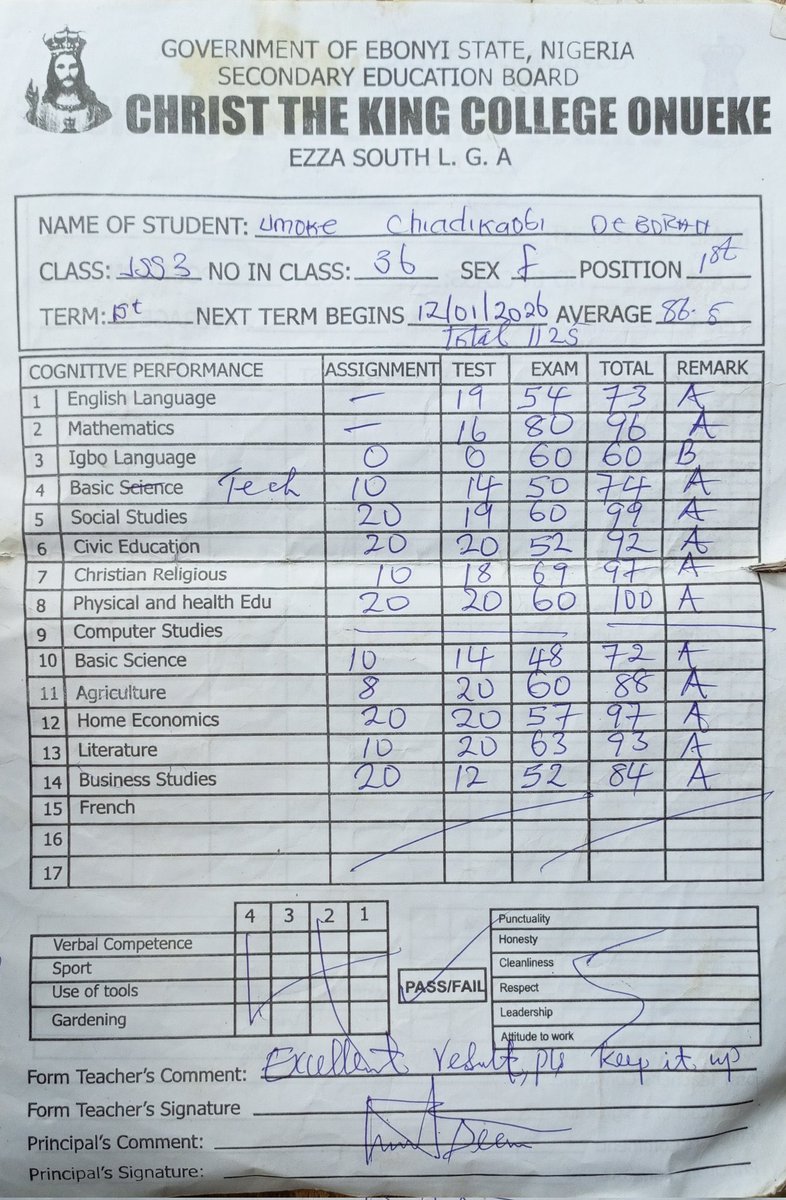 GOVERNMENT OF EBONYI STATE, NIGERIA
SECONDARY EDUCATION BOARD
CHRIST THE KING COLLEGE ONUEKE
EZZA SOUTH L. G. A
NAME OF STUDENT: Umoke Chiadikaobi DEBORAH
CLASS: JSS3 NO IN CLASS: 36 SEX f POSITION 1st
TERM: 1st NEXT TERM BEGINS 12/01/2026 AVERAGE 86.5
Total 1125
COGNITIVE PERFORMANCE ASSIGNMENT TEST EXAM TOTAL REMARK
1 English Language — 19 54 73 A
2 Mathematics — 16 80 96 A
3 Igbo Language 0 0 60 60 B
4 Basic Science Tech 10 14 50 74 A
5 Social Studies 20 19 60 99 A
6 Civic Education 20 20 52 92 A
7 Christian Religious 10 18 69 97 A
8 Physical and health Edu 20 20 60 100 A
9 Computer Studies
10 Basic Science 10 14 48 72 A
11 Agriculture 8 20 60 88 A
12 Home Economics 20 20 57 97 A
13 Literature 10 20 63 93 A
14 Business Studies 20 12 52 84 A
15 French
16
17
4 3 2 1
Verbal Competence
Sport
Use of tools
Gardening
PASS/FAIL
Punctuality
Honesty
Cleanliness
Respect
Leadership
Attitude to work
Form Teacher's Comment: Excellent result, pls keep it up
Form Teacher's Signature
Principal's Comment:
Principal's Signature: